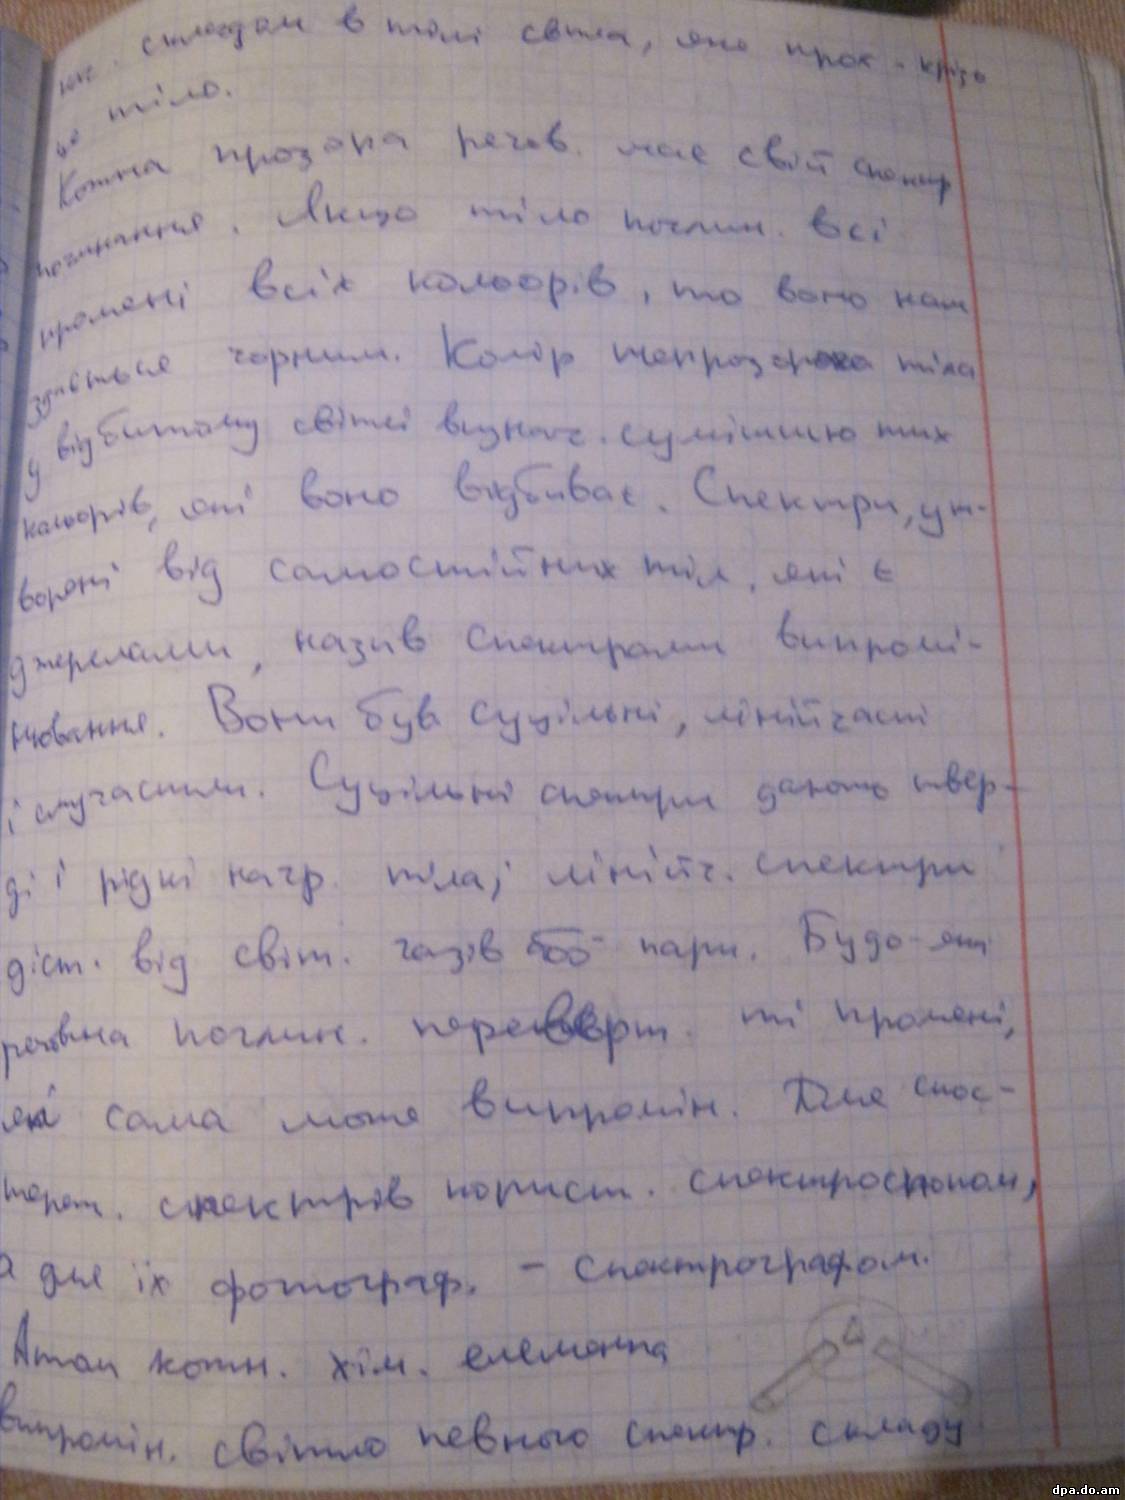 складом в тілі світла, яке прох. крізь
це тіло.
Кожна прозора речов. має свій спектр
поглинання. Якщо тіло поглин. всі
промені всіх кольорів, то воно нам
здається чорним. Колір непрозорого тіла
у відбитому світлі визнач. сумішшю тих
кольорів, які воно відбиває. Спектри, ут-
ворені від самостійних тіл, які є
джерелами, назив спектрами випромі-
нювання. Вони був суцільні, лінійчасті
і смугастими. Суцільні спектри дають твер-
ді і рідкі нагр. тіла; лінійч. спектри
діст. від світ. газів або пари. Будо-які
речовина поглин. ті промені,
які сама може випромін. Для спос-
тереж. спектрів корист. спектроскопом,
а для їх фотограф. - спектрографом.
Атом кожн. хім. елемента
випромін. світло певного спектр. складу
dpa.do.am